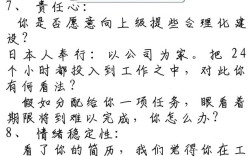 7、 责任心:
你是否愿意向上级提些合理化建
设?
日本人奉行:以公司为家。把 24
个小时都投入到工作之中,对此你
有何看法?
假如分配给你一项任务,眼看着
期限将到难以完成,你怎么办?
8、 情绪稳定性:
看了你的简历,我们觉得你在工